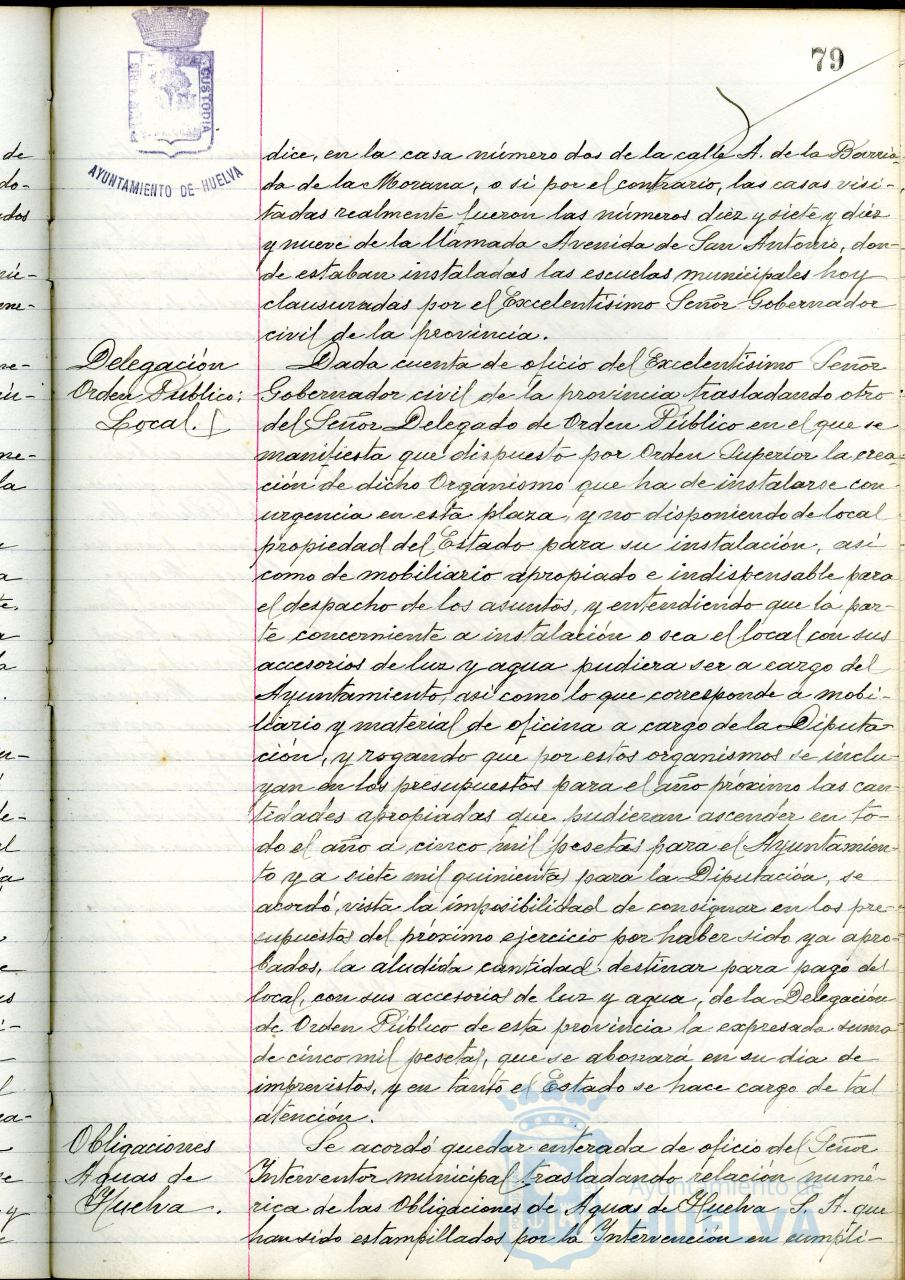 79
AYUNTAMIENTO DE HUELVA
CUSTODIA
dice, en la casa número dos de la calle A. de la Barria-
da de la Morana, o si por el contrario, las casas visi-
tadas realmente fueron las números diez y siete y diez
y nueve de la llamada Avenida de San Antonio, don-
de estaban instaladas las escuelas municipales hoy
clausuradas por el Excelentísimo Señor Gobernador
civil de la provincia.
Delegación
Orden Público;
Local.
Dada cuenta de oficio del Excelentísimo Señor
Gobernador civil de la provincia trasladando otro
del Señor Delegado de Orden Público en el que se
manifiesta que dispuesto por Orden Superior la crea-
ción de dicho Organismo que ha de instalarse con
urgencia en esta plaza, y no disponiendo de local
propiedad del Estado para su instalación, así
como de mobiliario apropiado e indispensable para
el despacho de los asuntos, y entendiendo que la par-
te concerniente a instalación o sea el local con sus
accesorios de luz y agua pudiera ser a cargo del
Ayuntamiento, así como lo que corresponde a mobi-
liario y material de oficina a cargo de la Diputa-
ción, y rogando que por estos organismos se inclu-
yan en los presupuestos para el año próximo las can-
tidades apropiadas que pudieran ascender en to-
do el año a cinco mil pesetas para el Ayuntamien-
to y a siete mil quinientas para la Diputación, se
acordó, vista la imposibilidad de consignar en los pre-
supuestos del próximo ejercicio por haber sido ya apro-
bados, la aludida cantidad, destinar para pago del
local, con sus accesorios de luz y agua, de la Delegación
de Orden Público de esta provincia la expresada suma
de cinco mil pesetas, que se abonará en su día de
imprevistos, y en tanto el Estado se hace cargo de tal
atención.
Obligaciones
Aguas de
Huelva.
Se acordó quedar enterada de oficio del Señor
Interventor municipal trasladando relación numé-
rica de las Obligaciones de Aguas de Huelva S. A. que
han sido estampillados por la Intervención en cumpli-
Ayuntamiento de
HUELVA